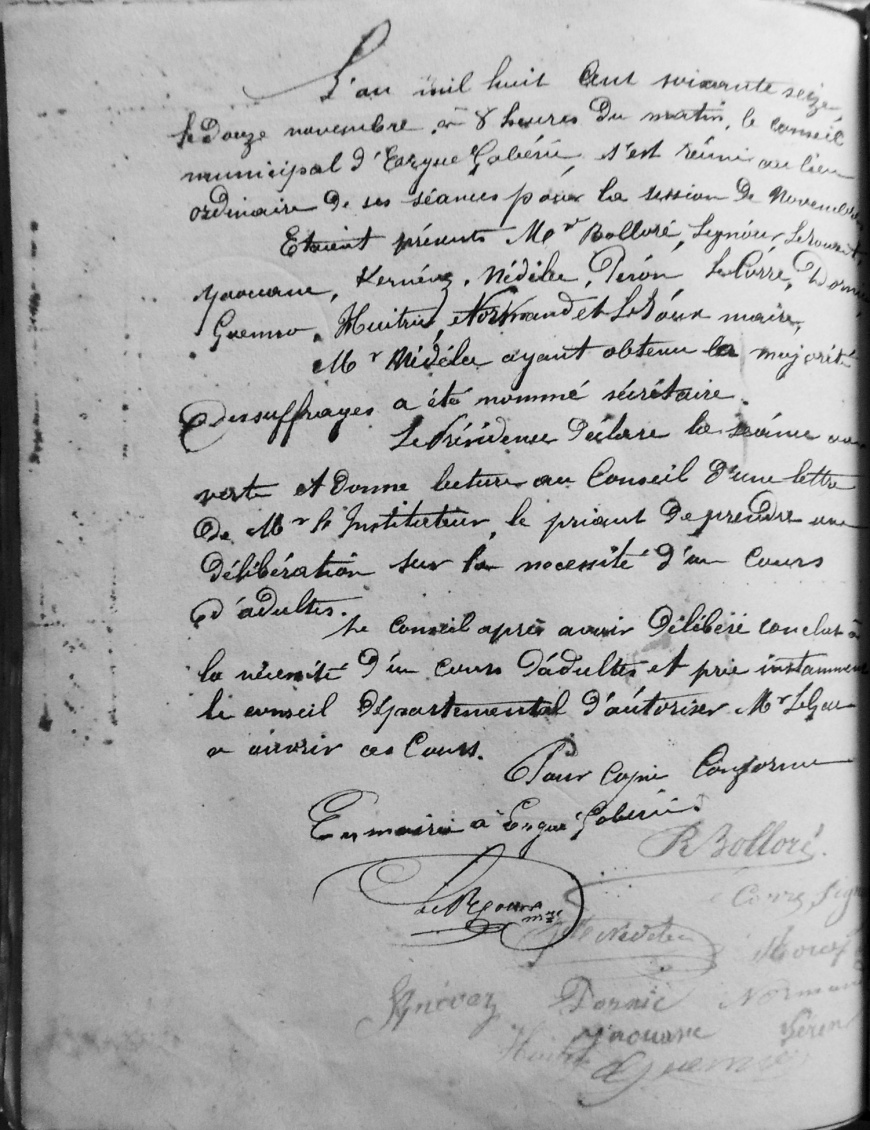 L'an mil huit Cent soixante seize
le Douze novembre, à 8 heures Du matin, le conseil
municipal d'Ergué Gabéric, s'est réuni au lieu
ordinaire De ses séances pour la session De Novembre
Etaient présents Mrs Bolloré, Signour, Lerouxt,
Yaouanc, Kernévez, Nédélec, Péron, Le Corre, Dornic,
Guennou, Huitric, Normand et Le Roux maire,
Mr Nédélec ayant obtenu la majorité
Des suffrages a été nommé sécrétaire.
Le Présidence Déclare la séance ou
verte et Donne lecture au Conseil D'une lettre
De Mr l'Instituteur, le priant De prendre une
Délibération sur la nécessité d'un Cours
D'adultes.
Le Conseil après avoir Délibéré conclut à
la nécessité D'un cours D'adultes et prie instamment
le conseil Départemental d'autoriser Mr LeGau
a ouvrir ces Cours.
Pour Copie Conforme
En mairie à Ergué Gabéric.
R Bolloré.
Le Roux mre
Corre Sign
Nédélec
Knévez Dornic Norman
Yaouanc Péron
Huitric Guennou